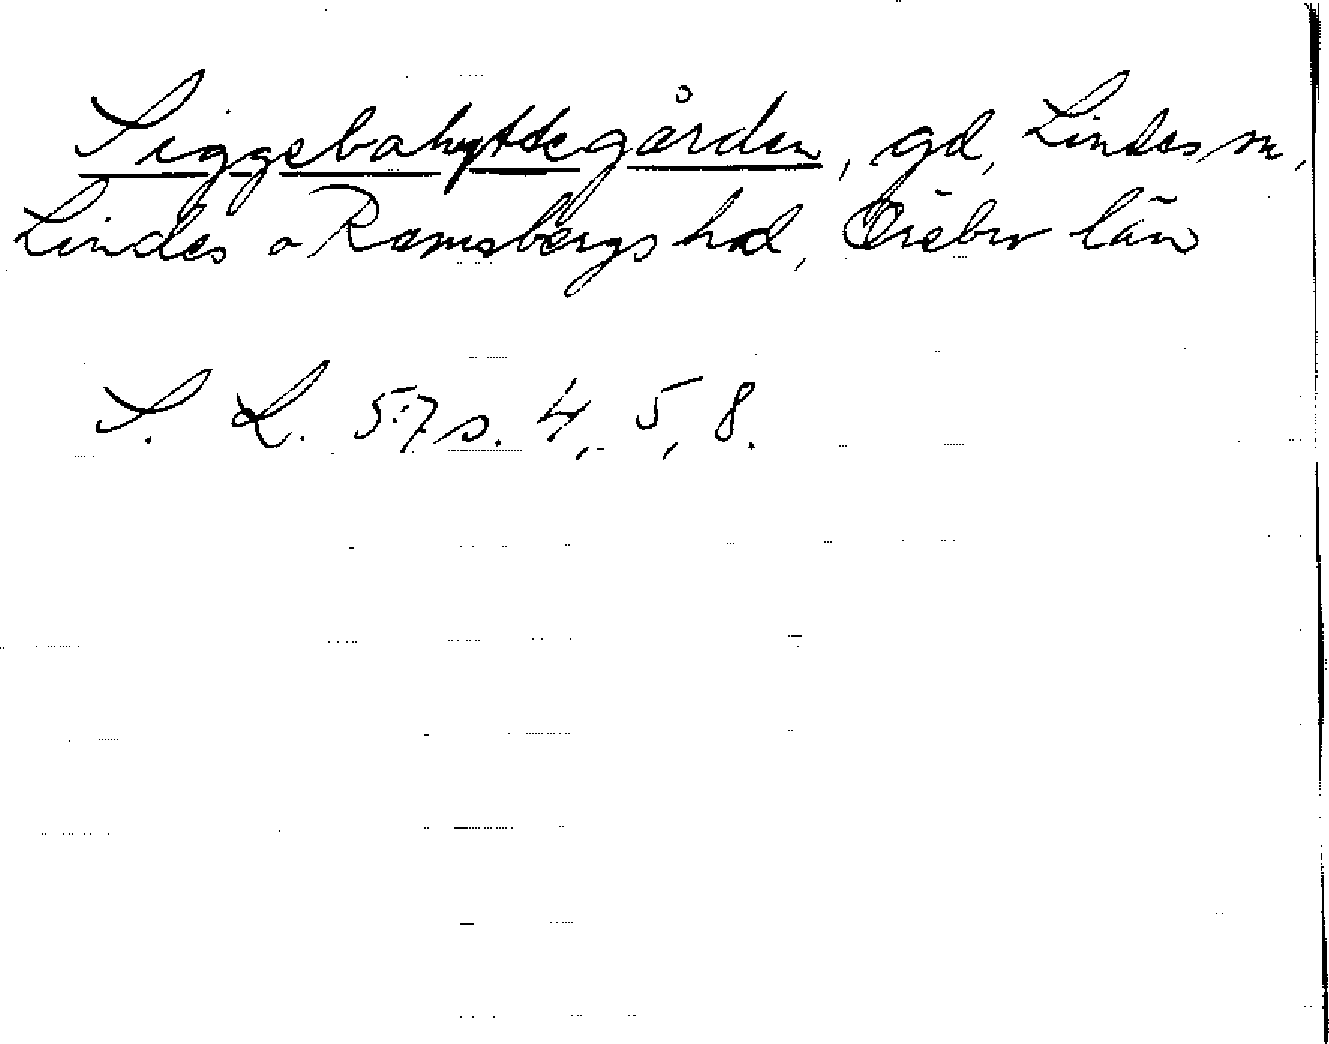 Siggebohyttegården, gd, Lindes sn,
Lindes o Ramsbergs hd, Örebro län
S. L. 57 s. 4, 5, 8.